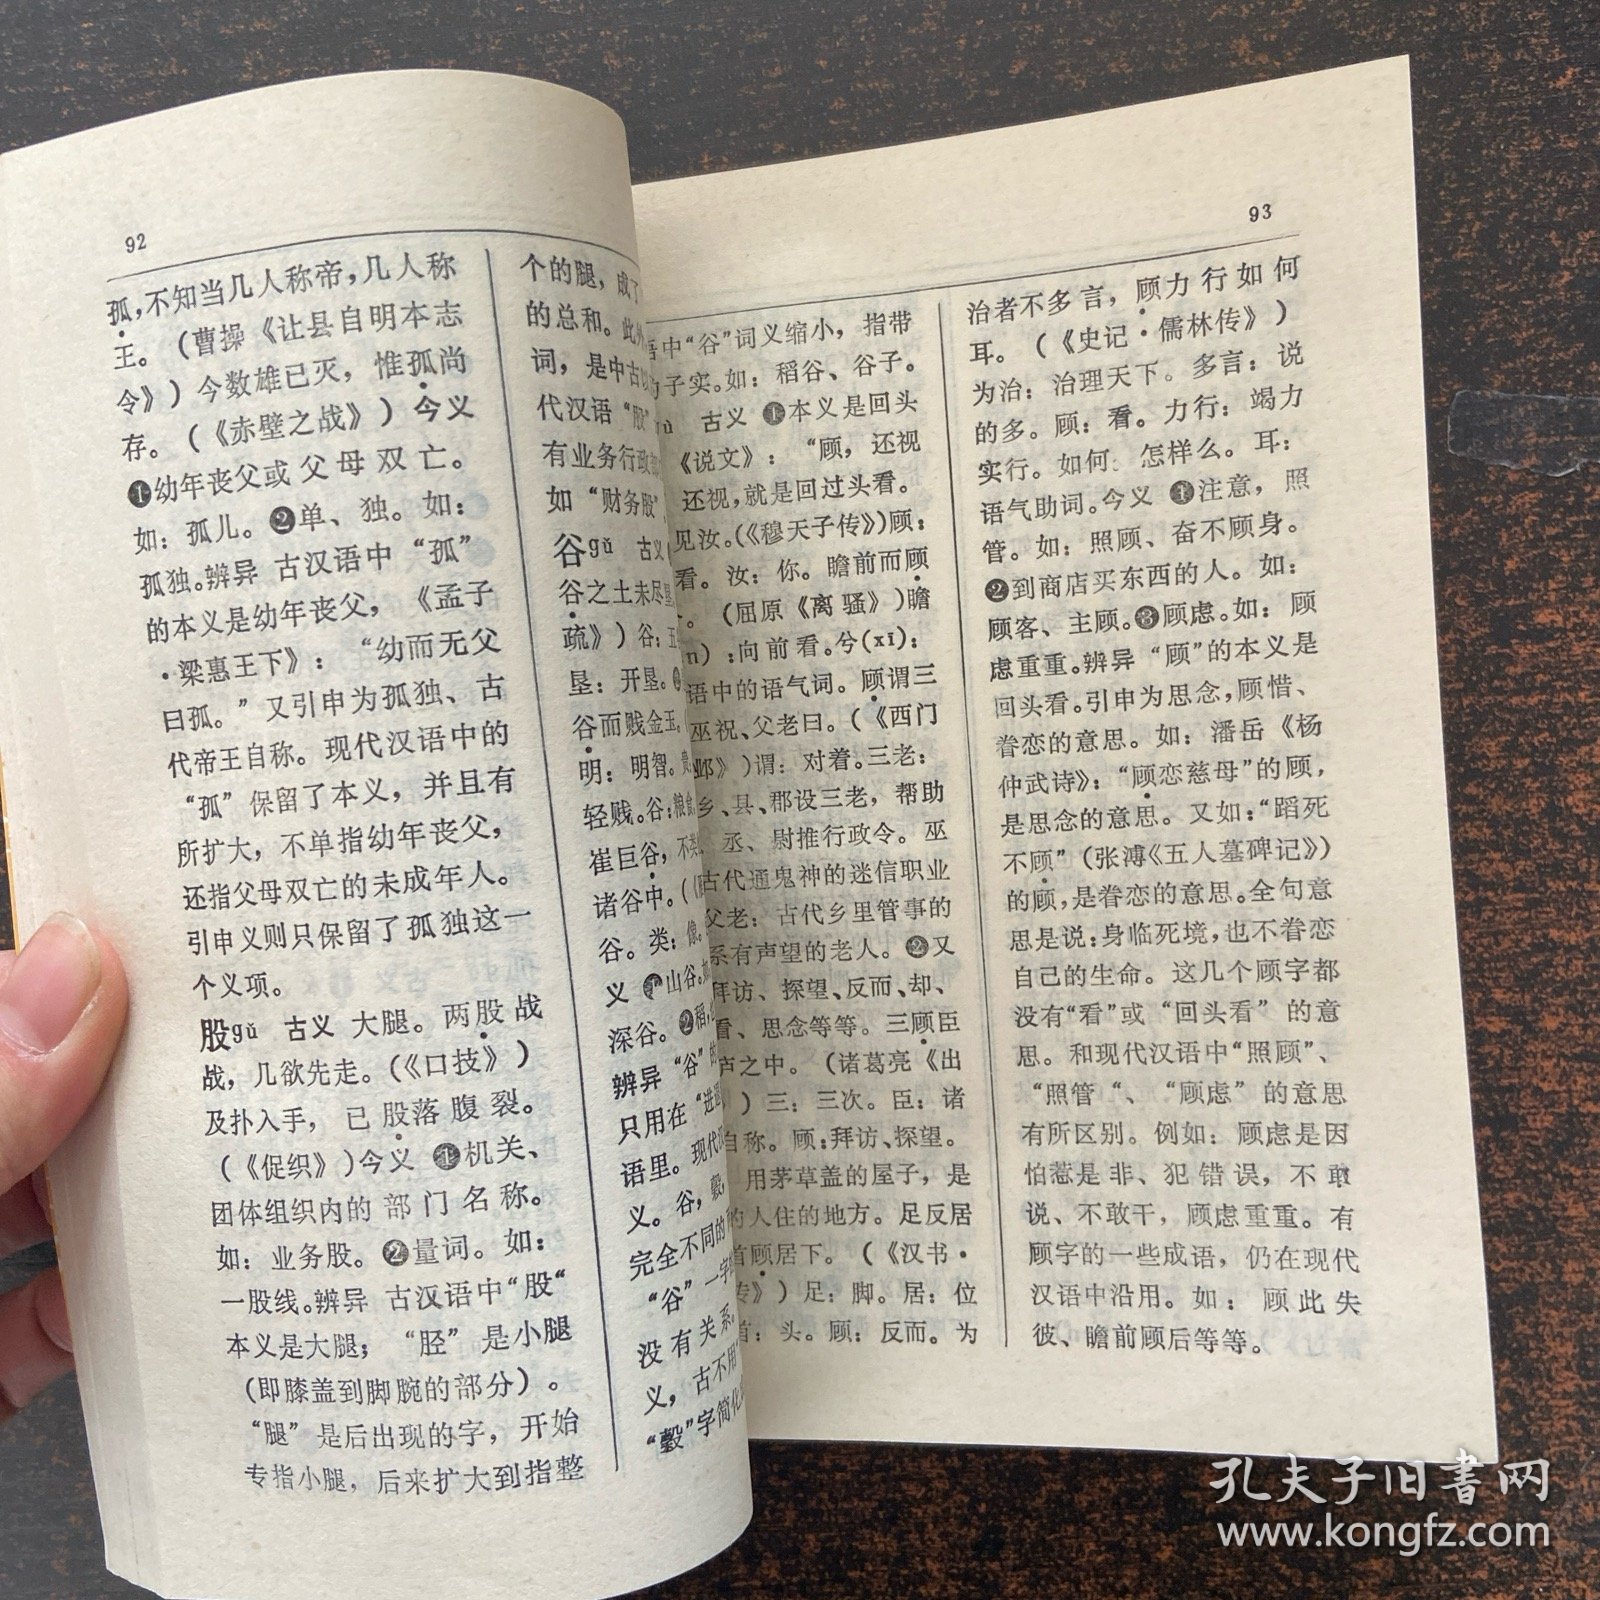 92
孤，不知当几人称帝，几人称
王。（曹操《让县自明本志
令》）今数雄已灭，惟孤尚
存。（《赤壁之战》）今义
❶幼年丧父或父母双亡。
如：孤儿。❷单、独。如：
孤独。辨异 古汉语中“孤”
的本义是幼年丧父，《孟子
·梁惠王下》：“幼而无父
曰孤。”又引申为孤独、古
代帝王自称。现代汉语中的
“孤”保留了本义，并且有
所扩大，不单指幼年丧父，
还指父母双亡的未成年人。
引申义则只保留了孤独这一
个义项。
股gǔ 古义 大腿。两股战
战，几欲先走。（《口技》）
及扑入手，已股落腹裂。
（《促织》）今义 ❶机关、
团体组织内的部门名称。
如：业务股。❷量词。如：
一股线。辨异 古汉语中“股“
本义是大腿；“胫”是小腿
（即膝盖到脚腕的部分）。
“腿”是后出现的字，开始
专指小腿，后来扩大到指整
个的腿，成了
的总和。此外
词，是中古以
代汉语“股”
有业务行政
如“财务股”
谷gǔ 古义
谷之土未尽垦
疏》）谷：五
垦：开垦。
谷而贱金玉。
明：明智。贵
轻贱。谷：粮食
崔巨谷，不
诸谷中。（
谷。类：像。
义 ❶山谷。如
深谷。❷稻
辨异 “谷”
只用在“进退
语里。现代汉
义。谷，穀
完全不同的
“谷”一字
没有关系。
义，古不用
“穀”字简化
93
语中“谷”词义缩小，指带
子实。如：稻谷、谷子。
古义 ❶本义是回头
《说文》：“顾，还视
还视，就是回过头看。
见汝。（《穆天子传》）顾：
看。汝：你。瞻前而顾
。（屈原《离骚》）瞻
n）：向前看。兮(xī)：
语中的语气词。顾谓三
巫祝、父老曰。（《西门
邺》）谓：对着。三老：
乡、县、郡设三老，帮助
丞、尉推行政令。巫
古代通鬼神的迷信职业
父老：古代乡里管事的
系有声望的老人。❷又
拜访、探望、反而、却、
看、思念等等。三顾臣
庐之中。（诸葛亮《出
）三：三次。臣：诸
自称。顾：拜访、探望。
用茅草盖的屋子，是
的人住的地方。足反居
首顾居下。（《汉书·
传》）足：脚。居：位
首：头。顾：反而。为
治者不多言，顾力行如何
耳。（《史记·儒林传》）
为治：治理天下。多言：说
的多。顾：看。力行：竭力
实行。如何：怎样么。耳：
语气助词。今义 ❶注意，照
管。如：照顾、奋不顾身。
❷到商店买东西的人。如：
顾客、主顾。❸顾虑。如：顾
虑重重。辨异 “顾”的本义是
回头看。引申为思念，顾惜、
眷恋的意思。如：潘岳《杨
仲武诗》：“顾恋慈母”的顾，
是思念的意思。又如：“蹈死
不顾”（张溥《五人墓碑记》）
的顾，是眷恋的意思。全句意
思是说：身临死境，也不眷恋
自己的生命。这几个顾字都
没有“看”或“回头看”的意
思。和现代汉语中“照顾”、
“照管“、“顾虑”的意思
有所区别。例如：顾虑是因
怕惹是非、犯错误，不敢
说、不敢干，顾虑重重。有
顾字的一些成语，仍在现代
汉语中沿用。如：顾此失
彼、瞻前顾后等等。
孔夫子旧書网
www.kongfz.com